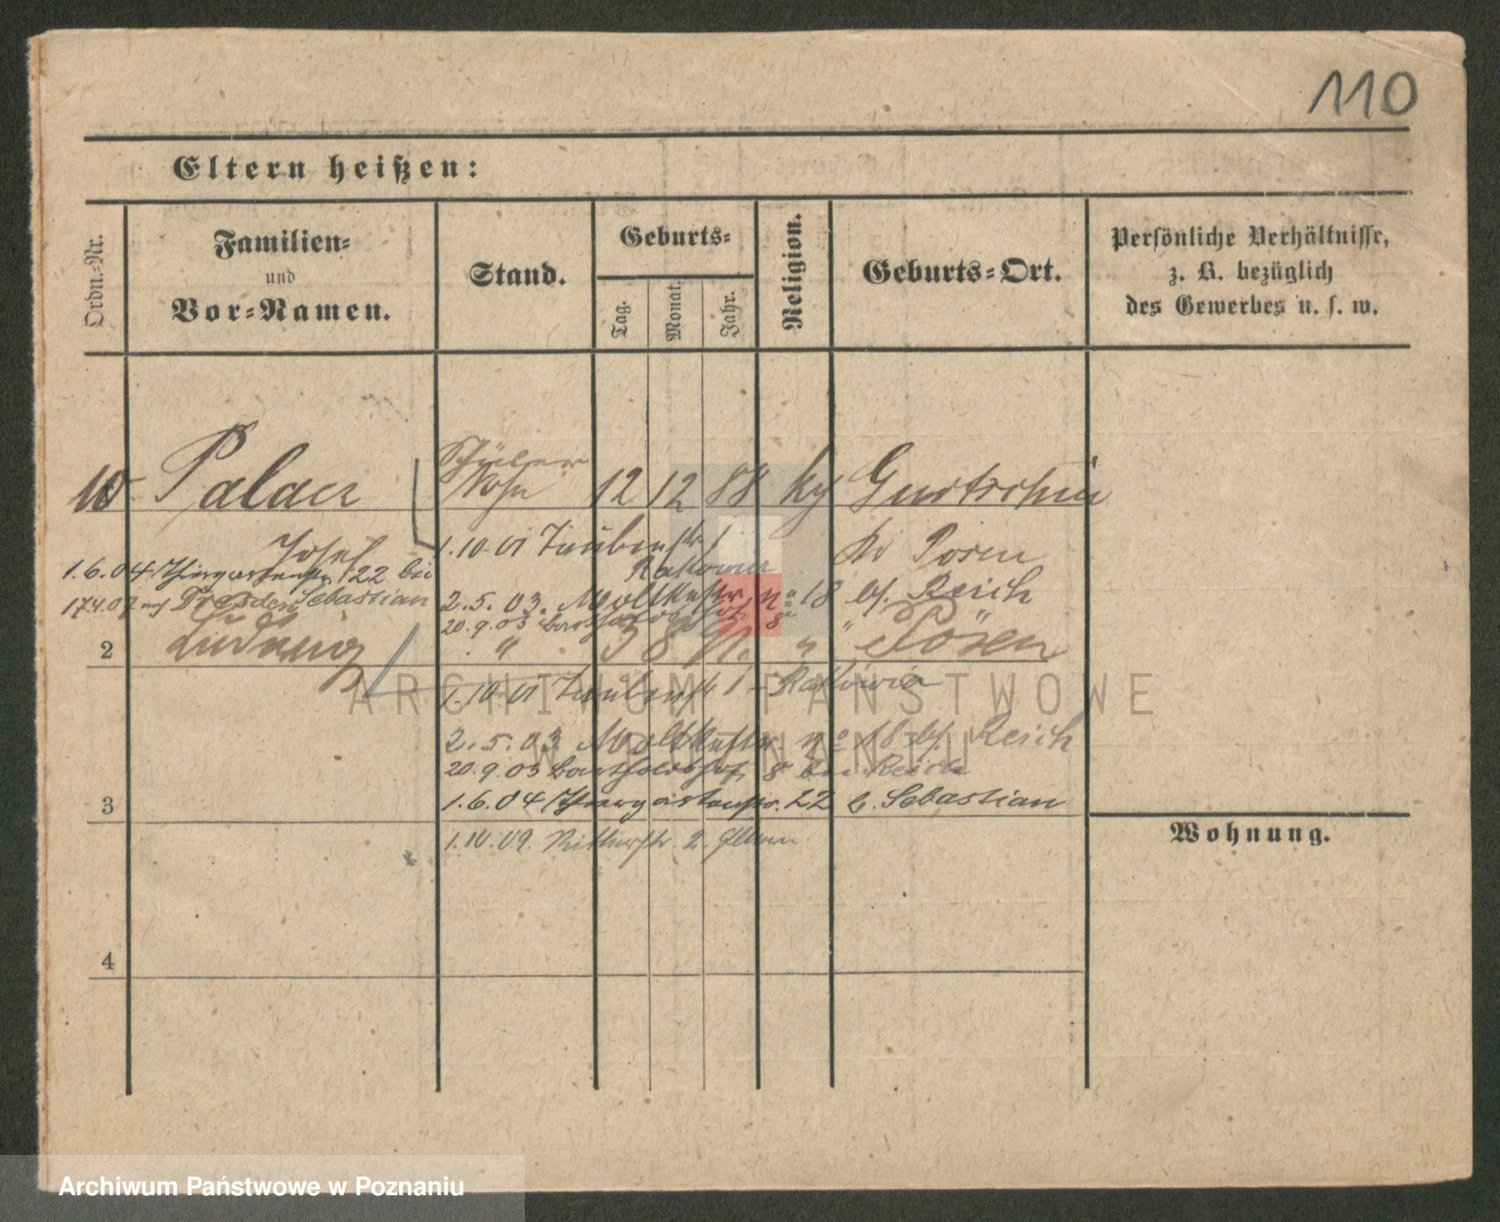 110
Eltern heißen:
Ordn.-Nr.
Familien-
und
Vor-Namen.
Stand.
Geburts-
Tag.
Monat.
Jahr.
Religion.
Geburts-Ort.
Persönliche Verhältnisse,
z. B. bezüglich
des Gewerbes u. s. w.
Schüler
Palacz 12 12 88
Josef 1.10.01 Taubenstr. 1 Posen
Rakowicz
1.6.04 22 bei
2.5.03. Moltkestr. no 18 bf. Reich
Dresden Sebastian
20.9.03 8
2 Ludwig " 3 8 " " Posen
1.10.01 Taubenstr. 1 Rakowicz
2.5.03 Moltkestr. no 18 bf. Reich
20.9.03 8 bei Reich
3 1.6.04 22 b. Sebastian
Wohnung.
1.10.09. Ritterstr. 2.
4
ARCHIWUM PAŃSTWOWE
W POZNANIU
Archiwum Państwowe w Poznaniu